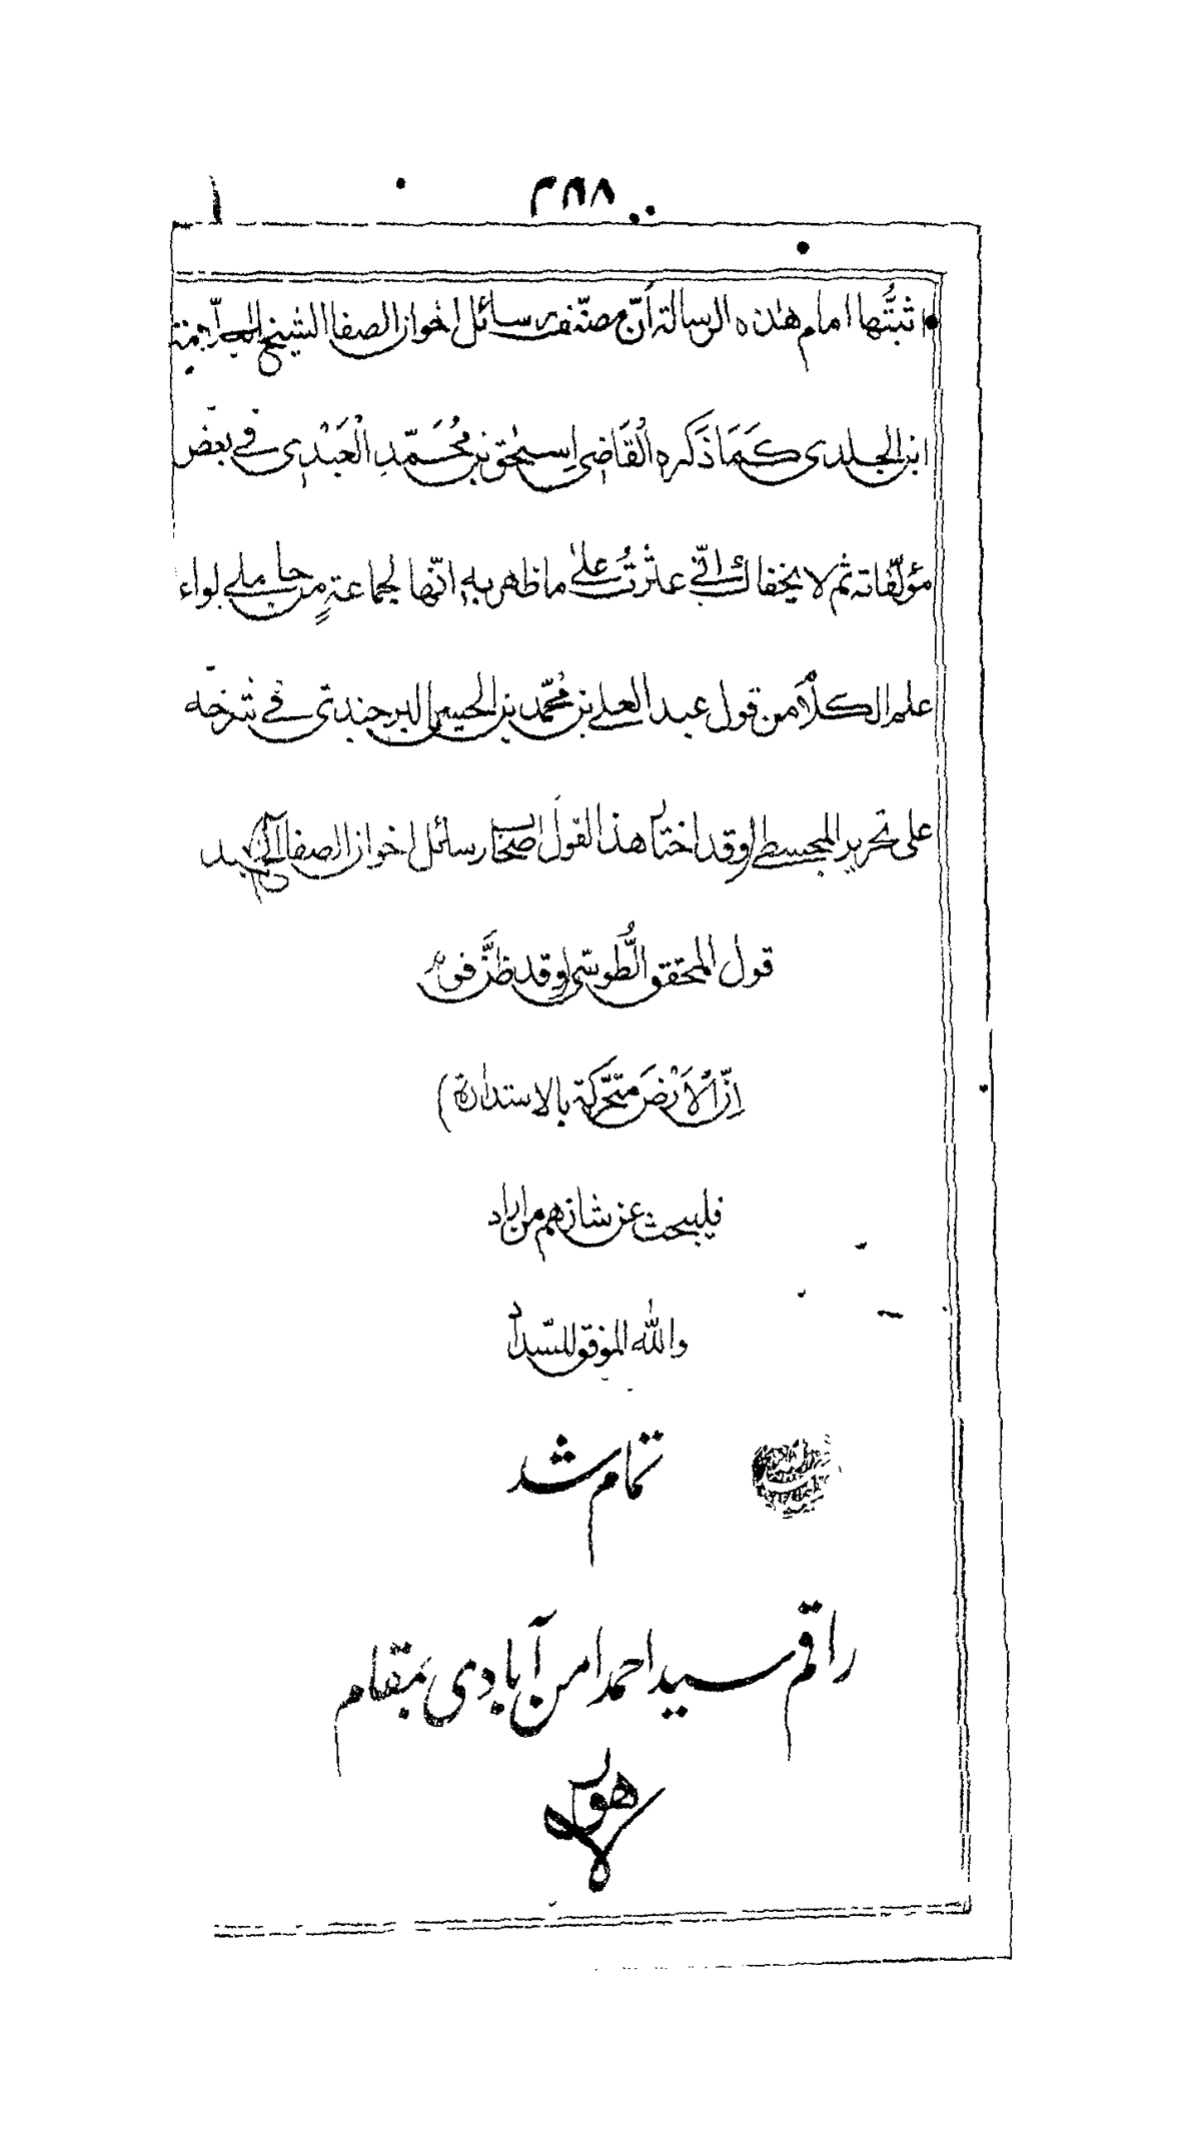 اثبتُّها امام هٰذه الرسالة أنّ مصنّف رسائل اخوان الصفا الشيخ
ابن الجلدى كَمَا ذَكره الْقَاضِى اِسحٰق بن مُحَمّدِ الْعَبْدِى فى بعض
مؤلّفاته ثم لا يخفاك انّى عثرْتُ علىٰ ما ظهر به انّها لجماعةٍ من حاملى لواء
علم الكلام من قول عبد العلى بن مُحمّد بن الحسين البرجندى فى شرحه
على تحرير المجسطى وقد اختار هذا القول اصحاب رسائل اخوان الصفا
قول المحقق الطُّوسى وقد ظنَّ فوم
اِنّ الْاَرْضَ متحرّكة بالاستدارة)
فليبحث عن شانهم من اراد
والله الموفق للسّداد
تمام شد
راقم سيد احمد امن آبادى بمقام
لاهور